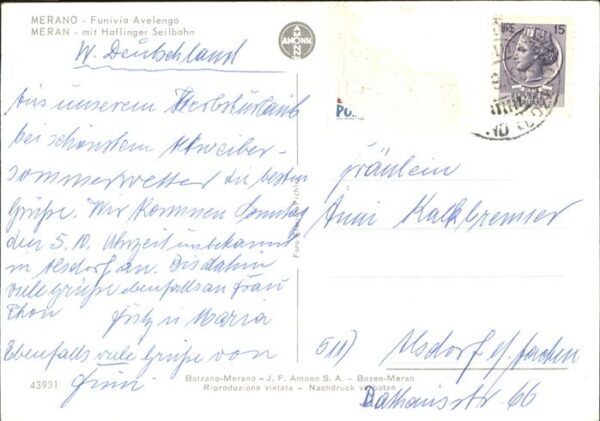 MERANO - Funivia Avelengo
MERAN - mit Haflinger Seilbahn
AMONN
LIRE 15
W. Deutschland
Aus unserem Herbsturlaub
bei schönstem Altweiber-
sommerwetter die besten
Grüße. Wir kommen Sonntag
den 5.10. Uhrzeit unbekannt
in Alsdorf an. Bis dahin
viele Grüße ebenfalls an Frau
Thon
Fritz u Maria
Ebenfalls viele Grüße von
Fräulein
Anni Kalkbrenner
511) Alsdorf b/ Aachen
Rathausstr 66
43931
Bolzano-Merano - J. F. Amonn S. A. - Bozen-Meran
Riproduzione vietata - Nachdruck verboten